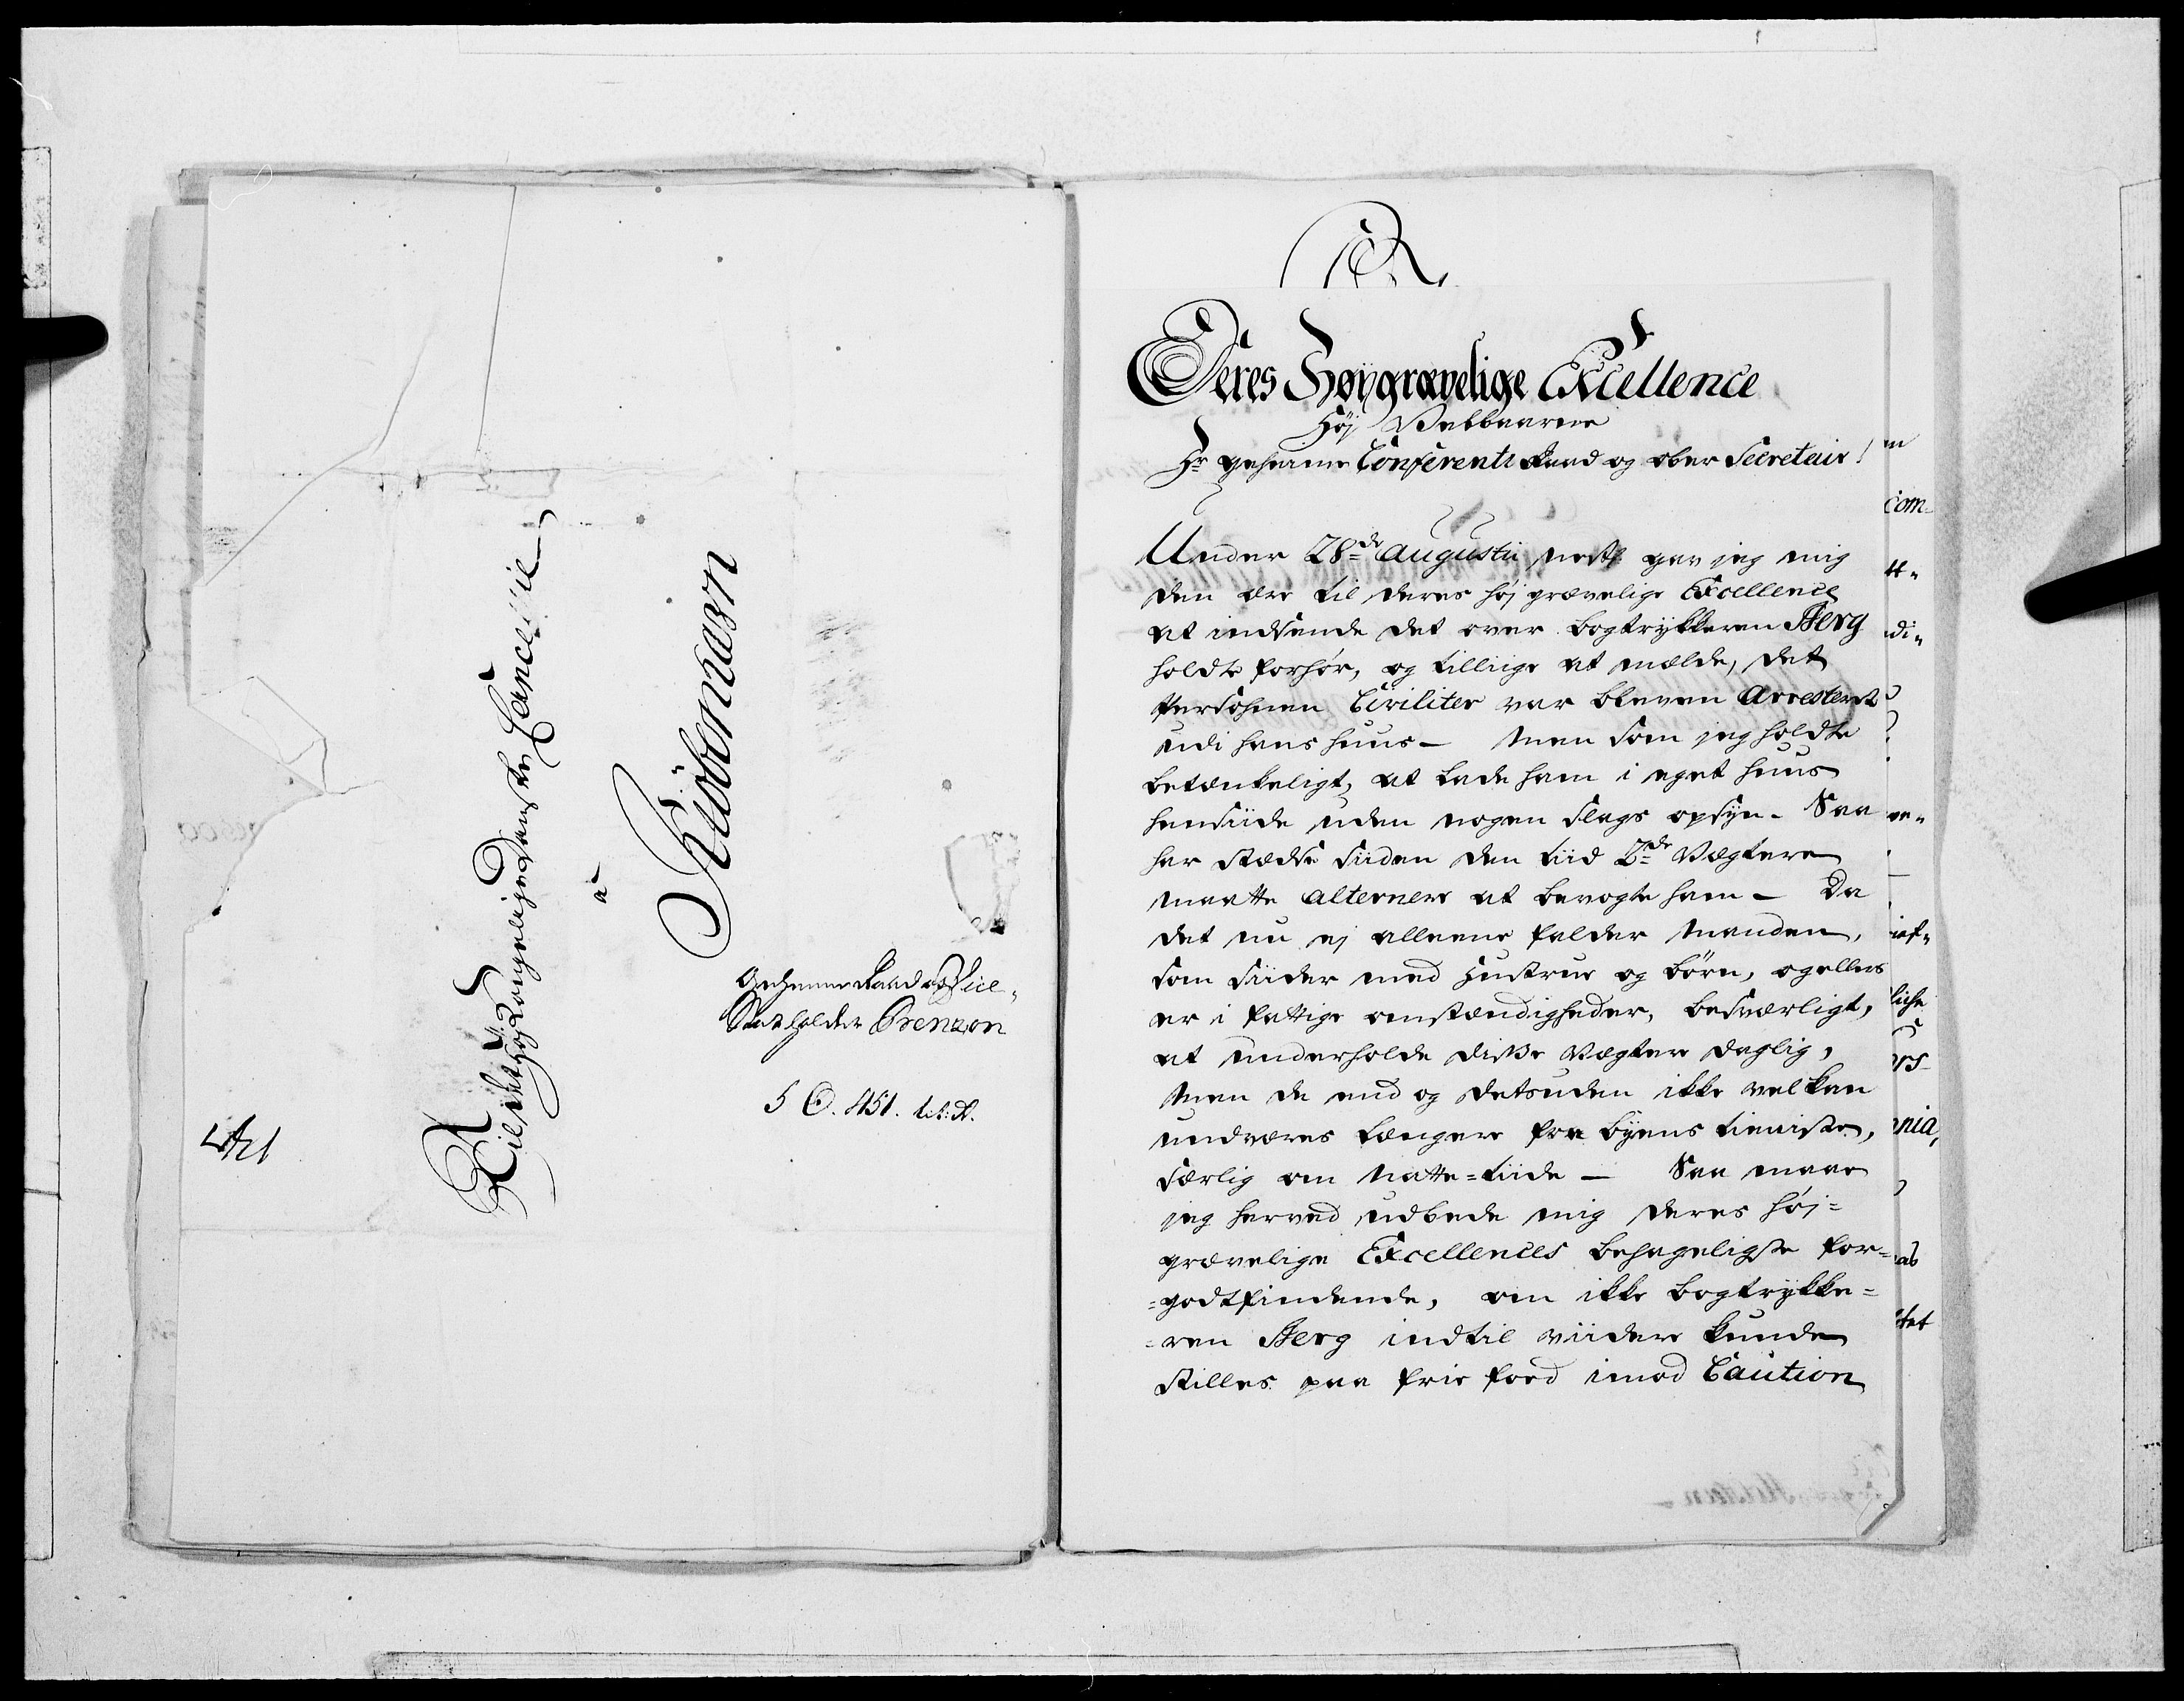 Til det Høy Kongelige Danske Cancellie
a
Kiöbenhavn
Geheime Raad og Vice-
Statholder Benzon
5 C. 451. Lit: A.
Deres Høygrævelige Excellence
Høj Velbaarne
Hr geheime Conferentz Raad og ober Secretair!
Under 28de Augustii nestl gav jeg mig
den ære til deres høj grævelige Excellence
at indsende det over bogtrykkeren Berg
holdte forhør, og tilliige at mælde, det
Persohnen Civiliter var bleven Arresteret
udi hans huus – Men som jeg holdte
betænkeligt, at lade ham i eget huus
hensiide uden nogen slags opsyn. Saa
har stædse siiden den tiid 2de Vægtere
maatte alternere at bevogte ham – Da
det nu ej alleene falder Manden,
som siider med Hustrue og børn, og ellers
er i fattige omstændigheder, besværligt,
at underholde disse Vægtere daglig,
Men de end og detsuden ikke vel kan
undværes længere fra byens tieniste,
særlig om Natte=tiide – Saa maae
jeg herved udbede mig deres høj=
grævelige Excellences behageligste for=
=godtfindende, om ikke bogtrykke=
=ren Berg indtil viidere kunde
stilles paa frie foed imod Caution